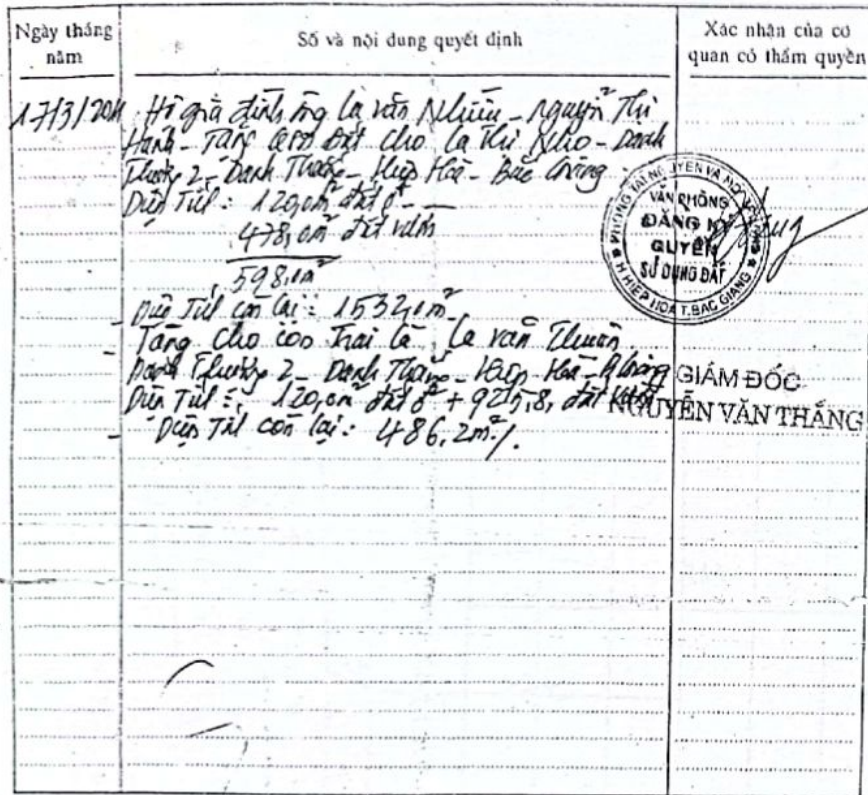 Ngày tháng năm
Số và nội dung quyết định
Xác nhận của cơ quan có thẩm quyền
17/3/2011 Hộ gia đình ông La văn Nhiều - Nguyễn Thị
Hạnh - Tặng QSD đất cho La Thị Nho - Danh
Thượng 2 - Danh Thắng - Hiệp Hoà - Bắc Giang
Diện Tích: 120,0m² đất ở
478,0m² đất vườn
598,0m²
- Diện Tích còn lại: 1532,0m²
- Tặng cho con Trai là La văn Thuân
Danh Thượng 2 - Danh Thắng - Hiệp Hoà - B Giang
Diện Tích: 120,0m² đất ở + 925,8, đất vườn
- Diện Tích còn lại: 486,2m²/.
PHÒNG TÀI NGUYÊN VÀ MÔI TRƯỜNG
VĂN PHÒNG
ĐĂNG KÝ
QUYỀN
SỬ DỤNG ĐẤT
H.HIỆP HÒA T.BẮC GIANG
GIÁM ĐỐC
NGUYỄN VĂN THẮNG